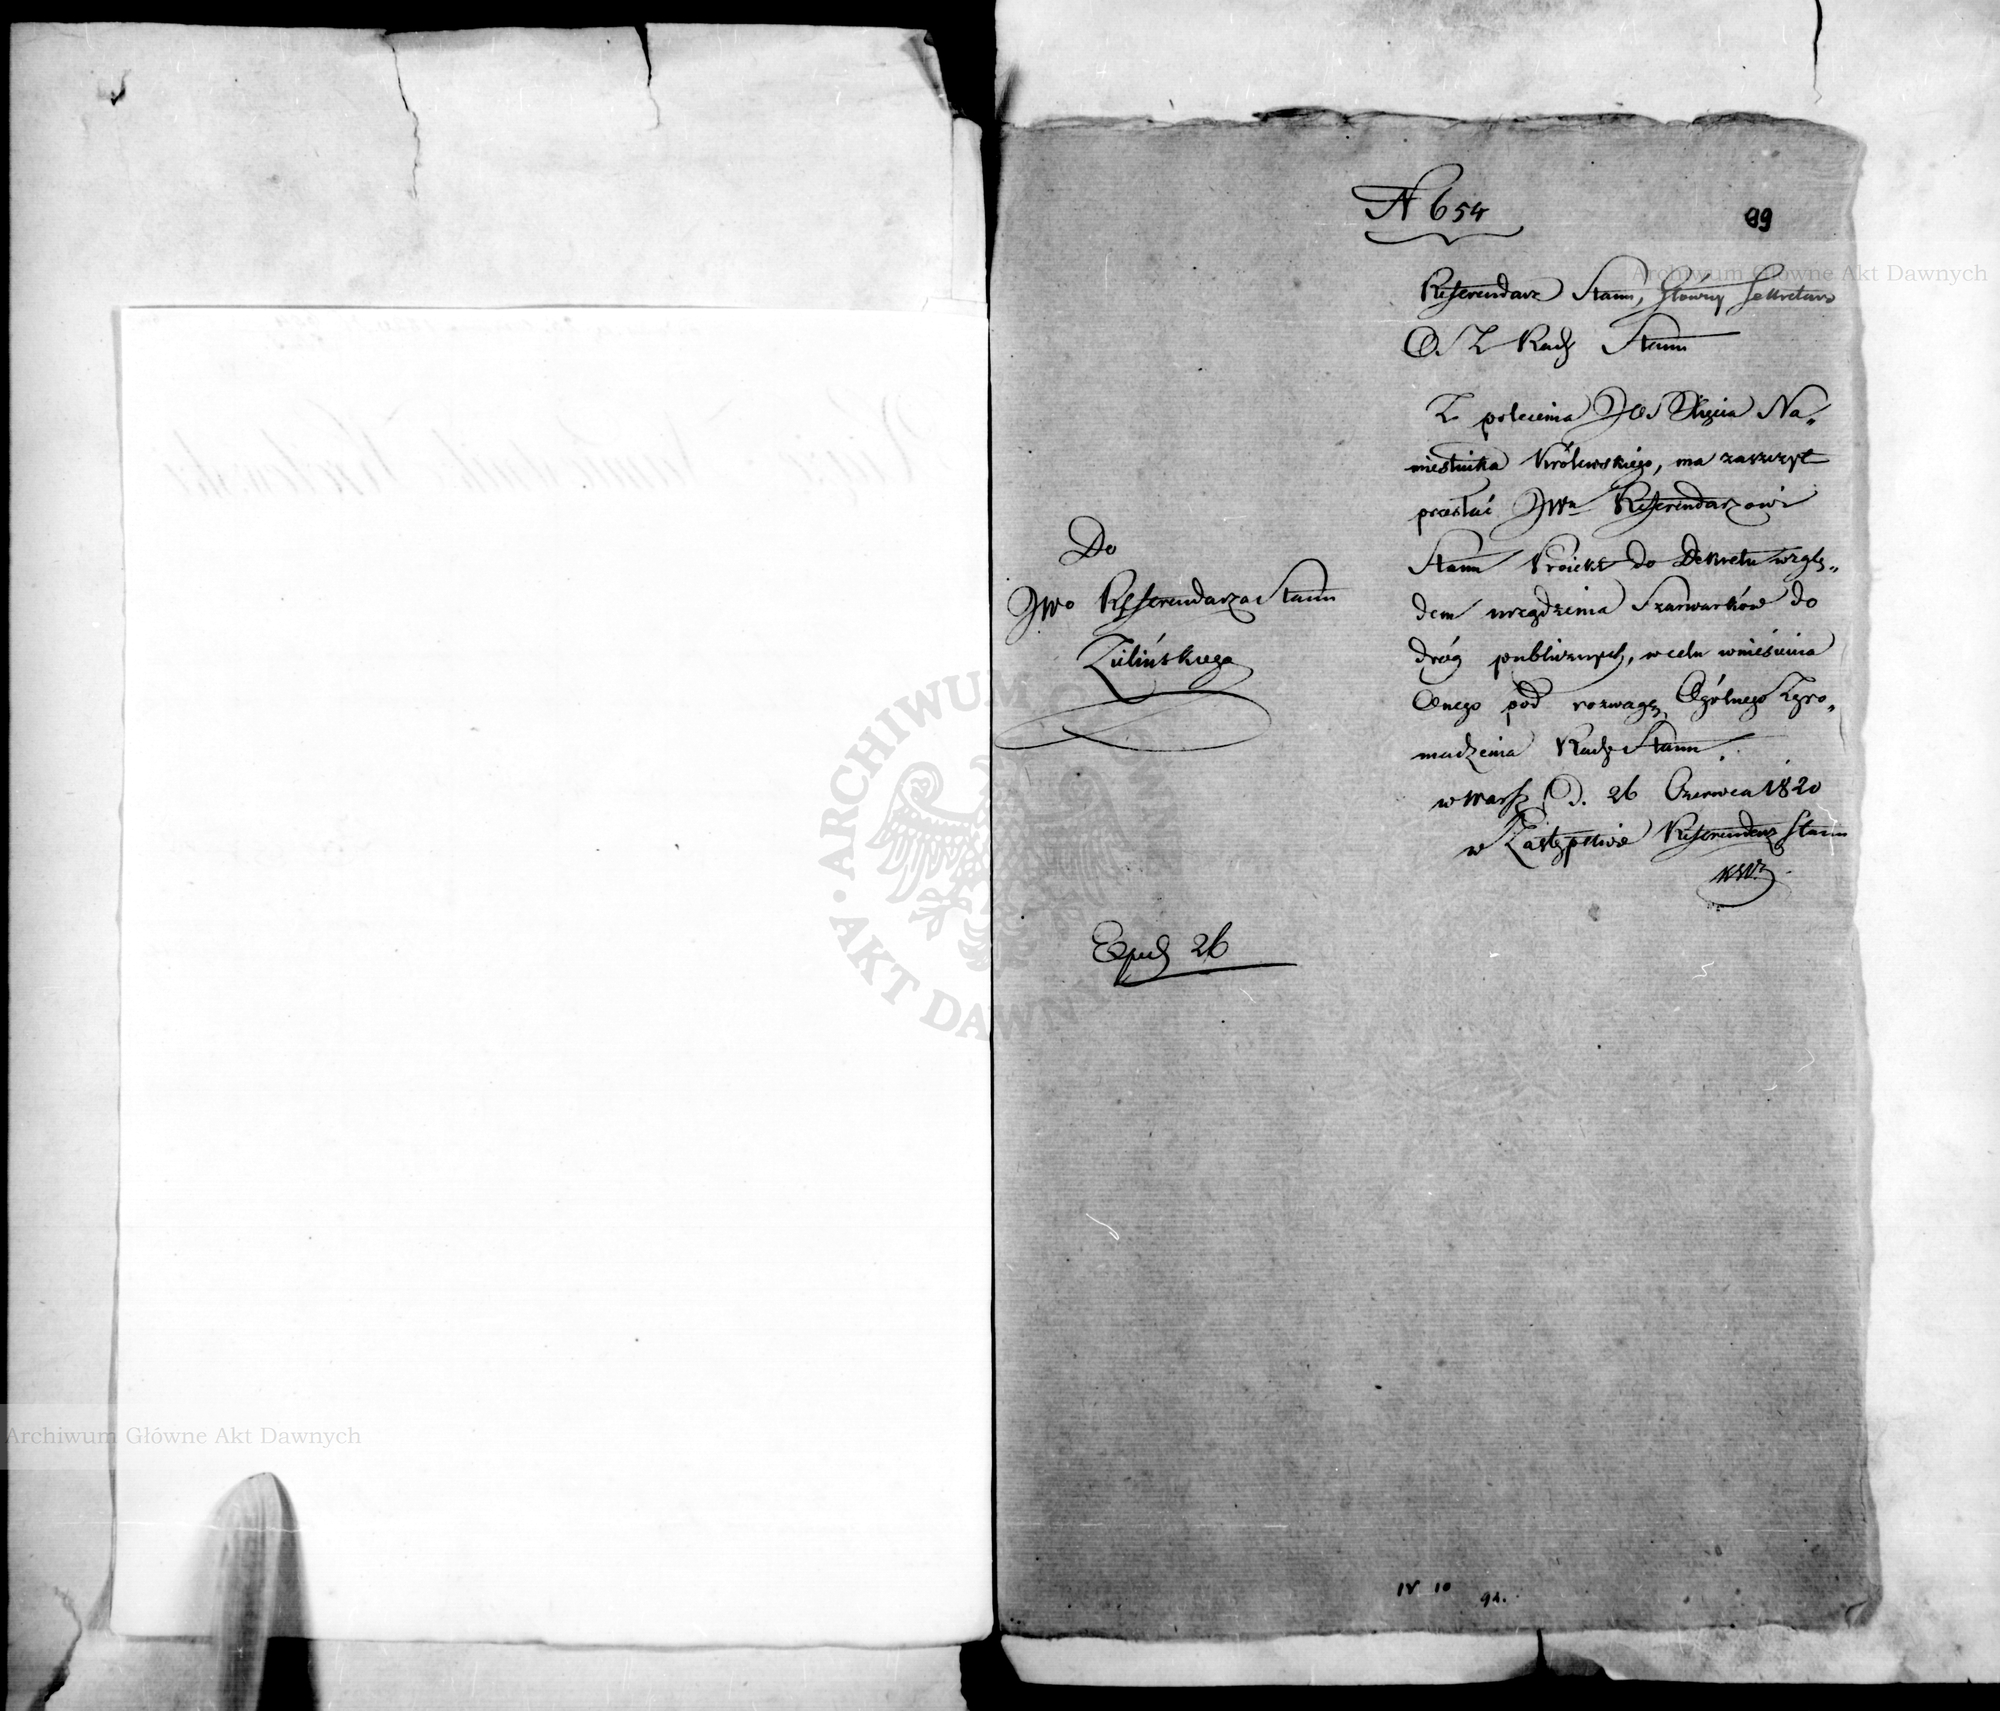 N 654
89
Referendarz Stanu, Główny Sekretarz
O. S. Z. Rady Stanu
Z polecenia JOs Xięcia Na„
miestnika Królewskiego, ma zaszczyt
przesłać JWu Referendarzowi
Stanu Proiekt do Dekretu wzglę„
dem urządzenia Szarwarków do
dróg publicznych, w celu wniesienia
Onego pod rozwagę Ogólnego Zgro„
madzenia Rady Stanu.
w Warsz D. 26 Czerwca 1820
w Zastępstwie Referendarz Stanu
Do
JWo Referendarza Stanu
Zielińskiego
Exped 26
IV 10
91.
Archiwum Główne Akt Dawnych
Archiwum Główne Akt Dawnych
ARCHIWUM GŁÓWNE AKT DAWNYCH